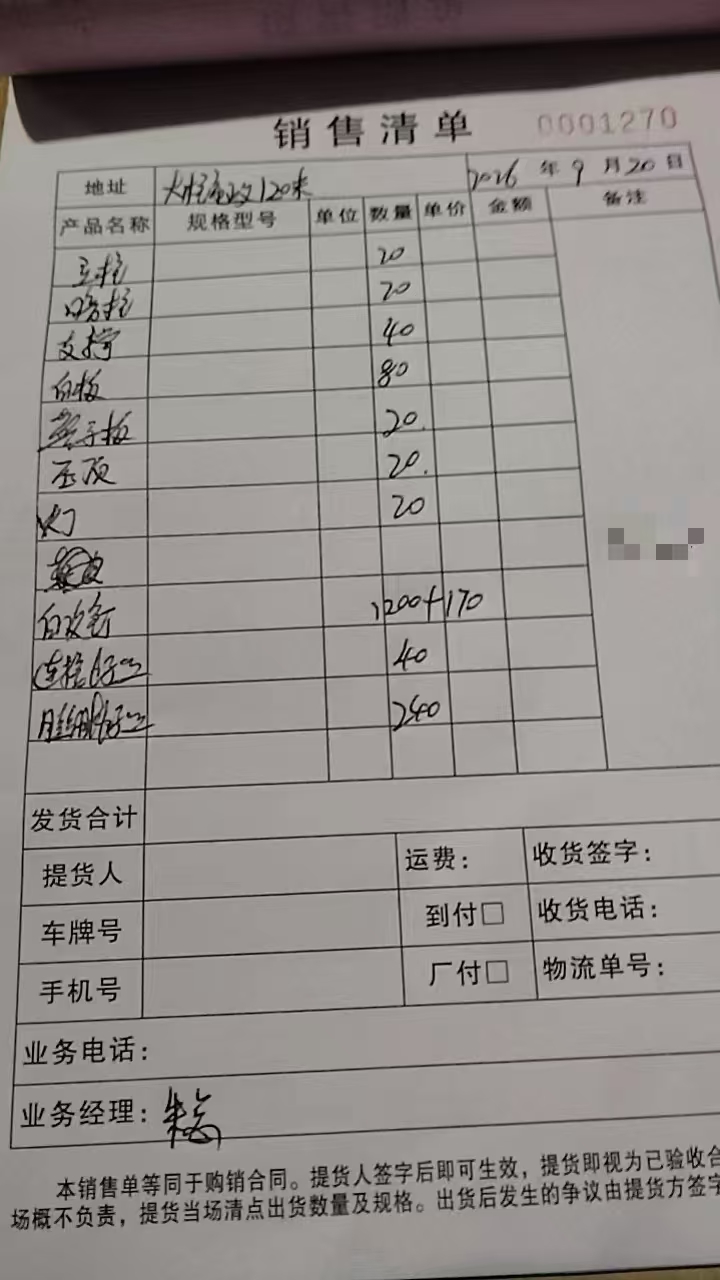 销售清单 0001270
地址 120米 2026年9月20日
产品名称 规格型号 单位 数量 单价 金额 备注
立柱 20
20
支撑 40
白板 80
20.
压顶 20.
灯 20
自攻钉 1200+170
40
240
发货合计
提货人 运费: 收货签字:
车牌号 到付□ 收货电话:
手机号 厂付□ 物流单号:
业务电话:
业务经理:
本销售单等同于购销合同。提货人签字后即可生效，提货即视为已验收合
场概不负责，提货当场清点出货数量及规格。出货后发生的争议由提货方签字